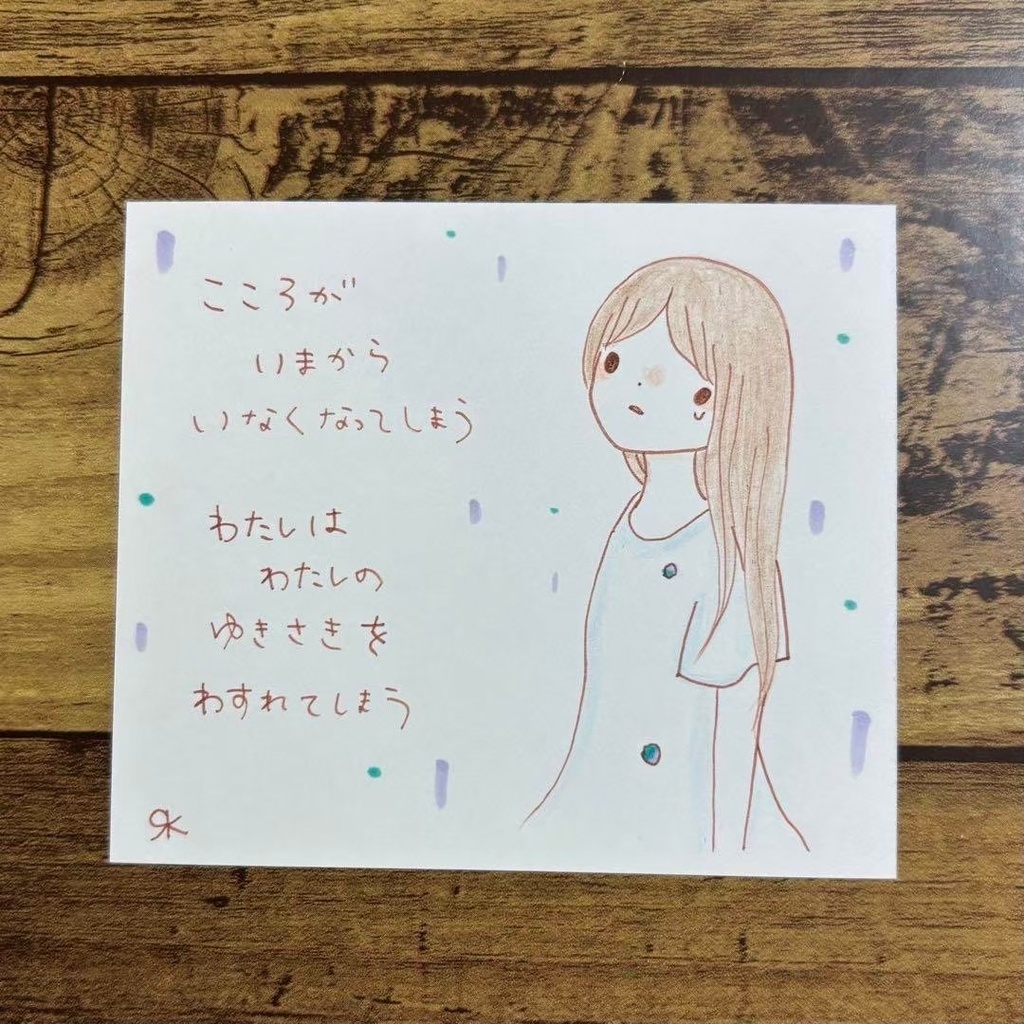 こころが
いまから
いなくなってしまう
わたしは
わたしの
ゆきさきを
わすれてしまう